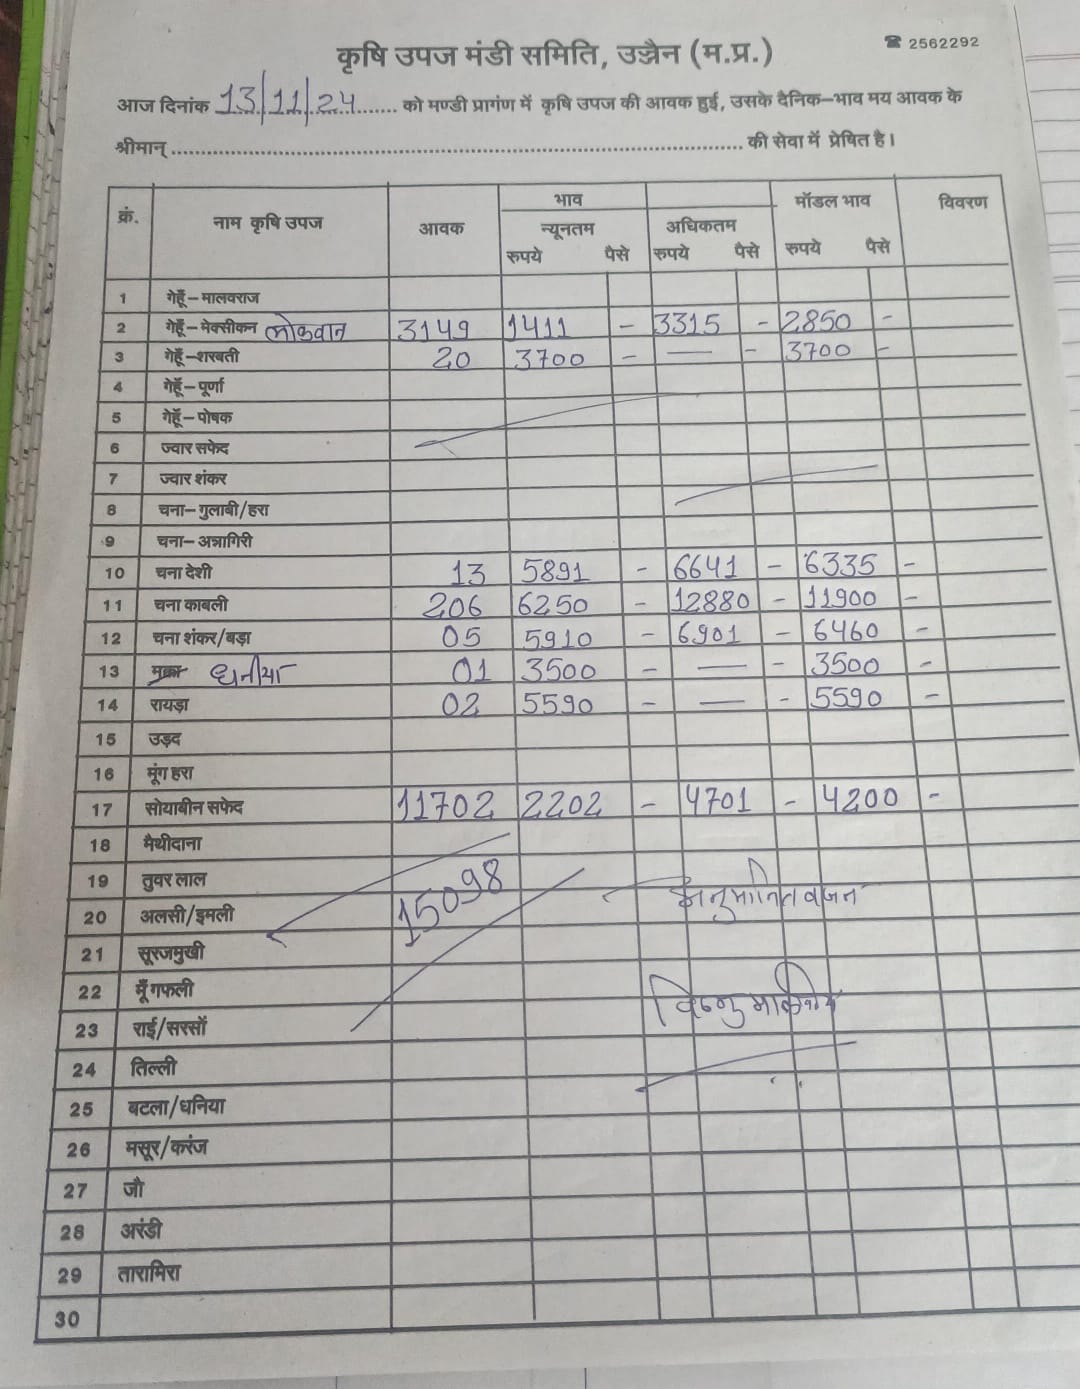 ☎ 2562292
कृषि उपज मंडी समिति, उज्जैन (म.प्र.)
आज दिनांक 13/11/24 को मण्डी प्रागंण में कृषि उपज की आवक हुई, उसके दैनिक-भाव मय आवक के
श्रीमान् ........ की सेवा में प्रेषित है।
क्रं. नाम कृषि उपज आवक भाव मॉडल भाव विवरण
न्यूनतम अधिकतम
रुपये पैसे रुपये पैसे रुपये पैसे
1 गेहूँ-मालवराज
2 गेहूँ-मेक्सीकन लोकवान 3149 1411 - 3315 - 2850 -
3 गेहूँ-शरबती 20 3700 - — - 3700 -
4 गेहूँ-पूर्णा
5 गेहूँ-पोषक
6 ज्वार सफेद
7 ज्वार शंकर
8 चना-गुलाबी/हरा
9 चना-अन्नागिरी
10 चना देशी 13 5891 - 6641 - 6335 -
11 चना काबली 206 6250 - 12880 - 11900 -
12 चना शंकर/बड़ा 05 5910 - 6901 - 6460 -
13 मक्का धनीया 01 3500 - — - 3500 -
14 रायड़ा 02 5590 - — - 5590 -
15 उड़द
16 मूंग हरा
17 सोयाबीन सफेद 11702 2202 - 4701 - 4200 -
18 मैथीदाना
19 तुवर लाल
20 अलसी/इमली 15098 अनुमानित वजन
21 सूरजमुखी
22 मूँगफली
23 राई/सरसों विष्णु
24 तिल्ली
25 बटला/धनिया
26 मसूर/करंज
27 जौ
28 अरंडी
29 तारामिरा
30